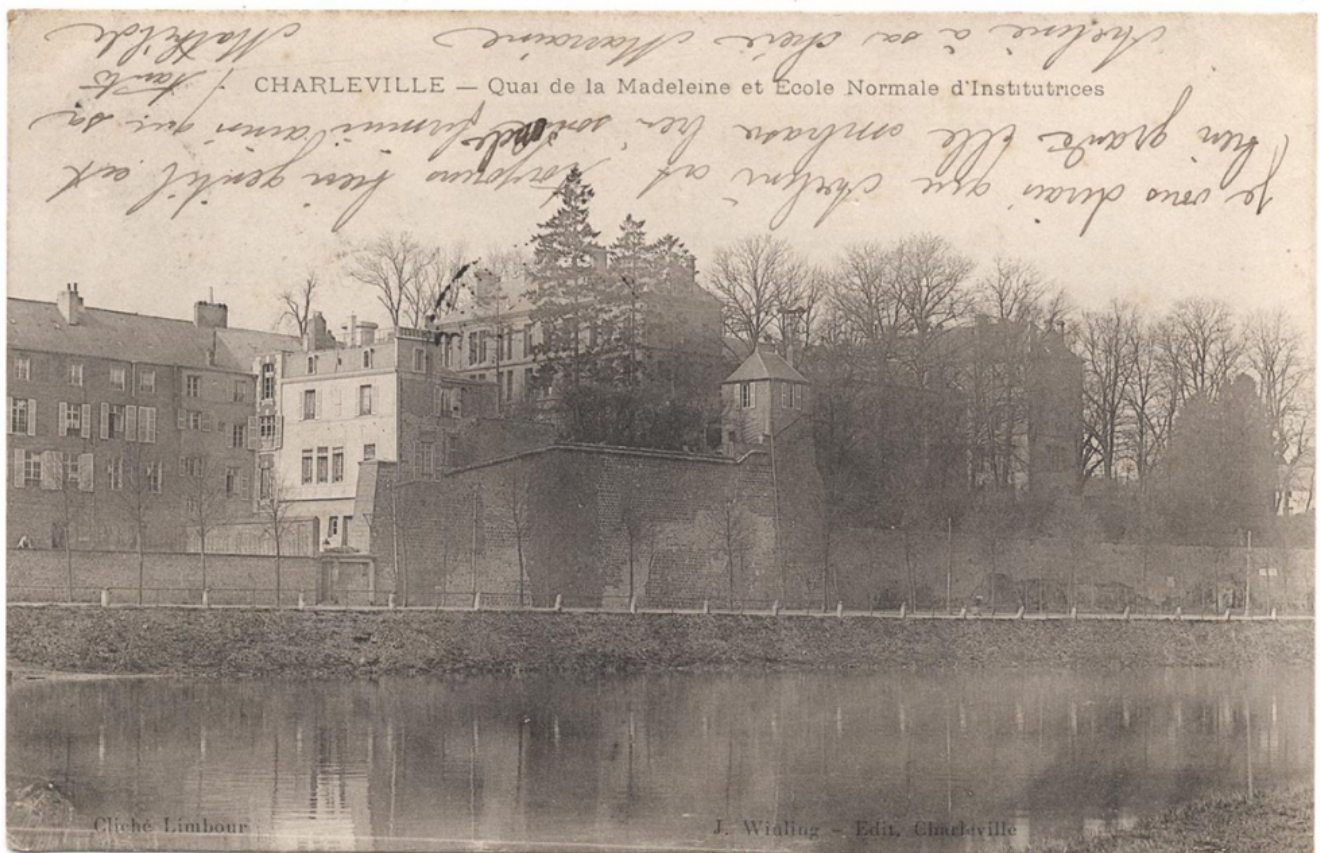 CHARLEVILLE — Quai de la Madeleine et Ecole Normale d'Institutrices
Je vous dirai que et toujours bien gentil et
bien grande elle embrasse bien son ainsi que sa
tante
Mathilde
à sa chère Marraine
Cliché Limbour
J. Winling — Edit. Charleville